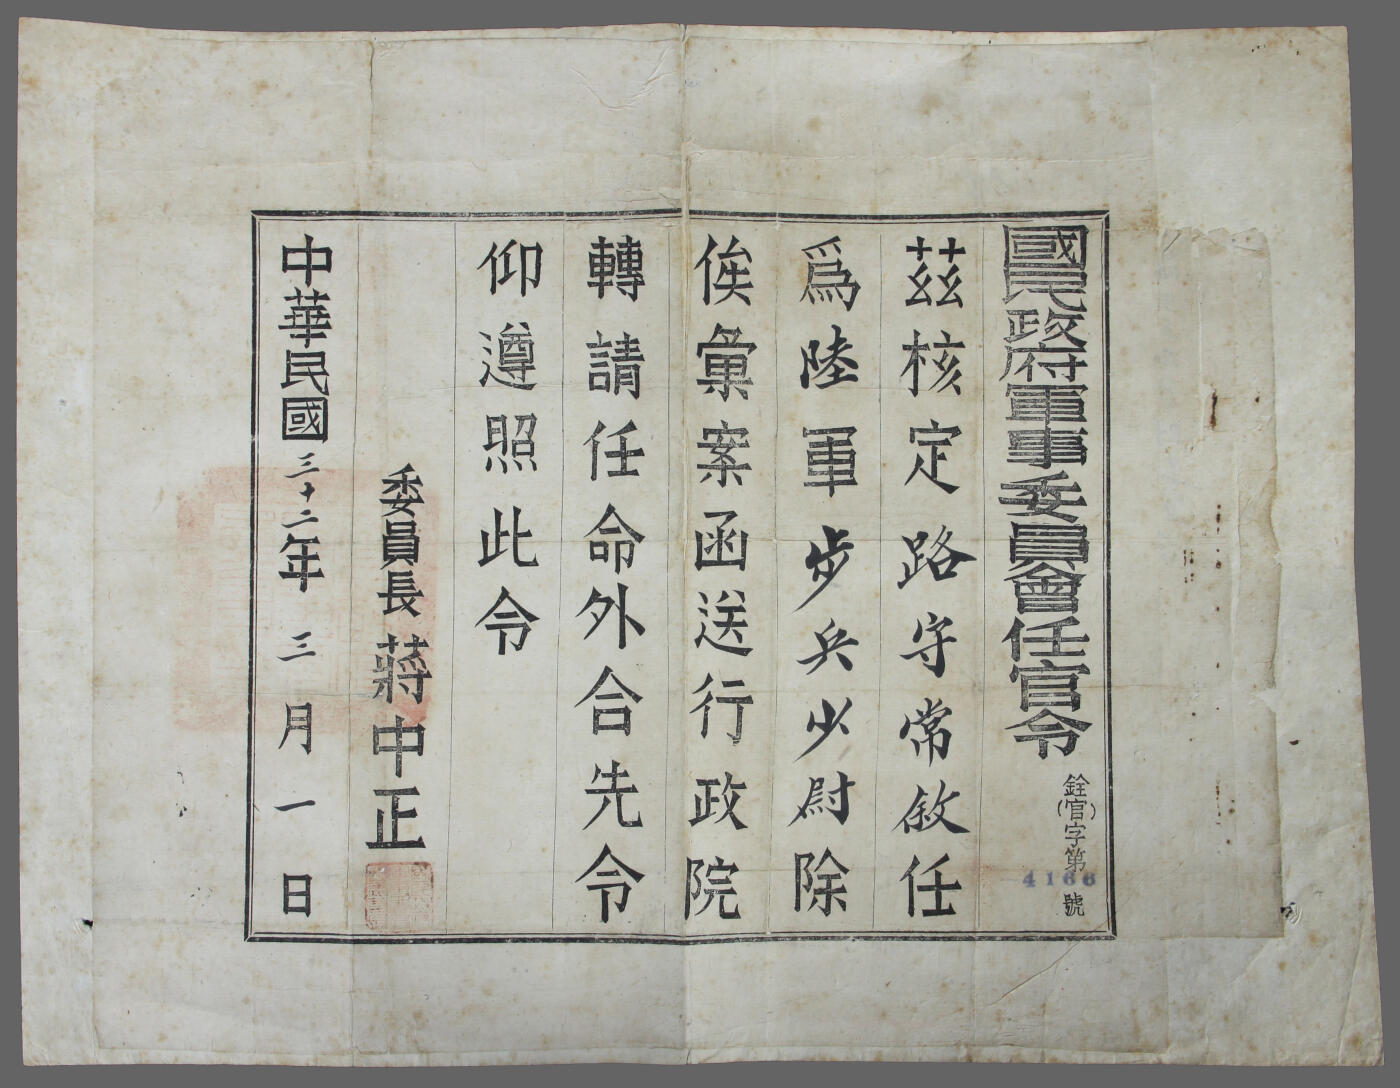 國民政府軍事委員會任官令
銓(官)字第4166號
茲核定路守常敘任
爲陸軍步兵少尉除
俟彙案函送行政院
轉請任命外合先令
仰遵照此令
委員長蔣中正
中華民國三十二年三月一日